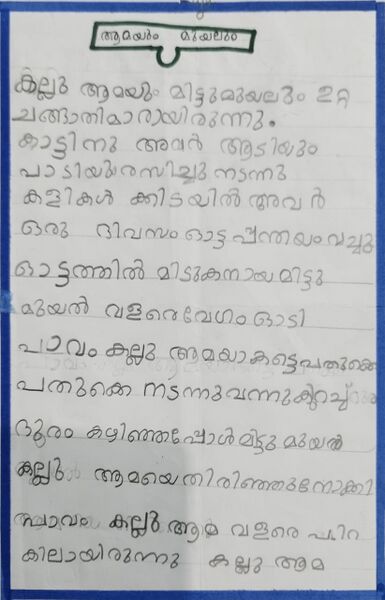 ആമയും മുയലും
കല്ലു ആമയും മിട്ടുമുയലും ഉറ്റ
ചങ്ങാതിമാരായിരുന്നു.
കാട്ടിനു അവർ ആടിയും
പാടിയും രസിച്ചു നടന്നു
കളികൾ ക്കിടയിൽ അവർ
ഒരു ദിവസം ഓട്ട പ്പന്തയം വച്ചു
ഓട്ടത്തിൽ മിടുക്കനായ മിട്ടു
മുയൽ വളരെ വേഗം ഓടി
പാവം കല്ലു ആമയാകട്ടെ പതുക്കെ
പതുക്കെ നടന്നു വന്നു കുറച്ച്
ദൂരം കഴിഞ്ഞപ്പോൾ മിട്ടു മുയൽ
കല്ലു ആമയെ തിരിഞ്ഞുനോക്കി
പാവം കല്ലു ആമ വളരെ പിറ
കിലായിരുന്നു കല്ലു ആമ